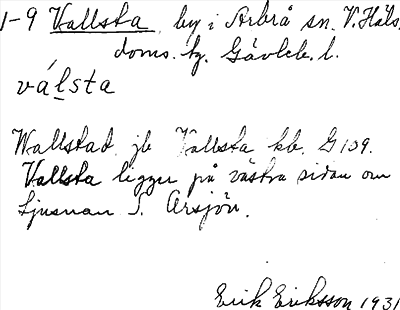 1-9 Vallsta, by i Arbrå sn. V. Häls.
doms. hg. Gävleb. l.
válsta
Wallstad jb Vallsta kb. G 139.
Vallsta ligger på västra sidan om
Ljusnan I. Arsjön.
Erik Eriksson 1931